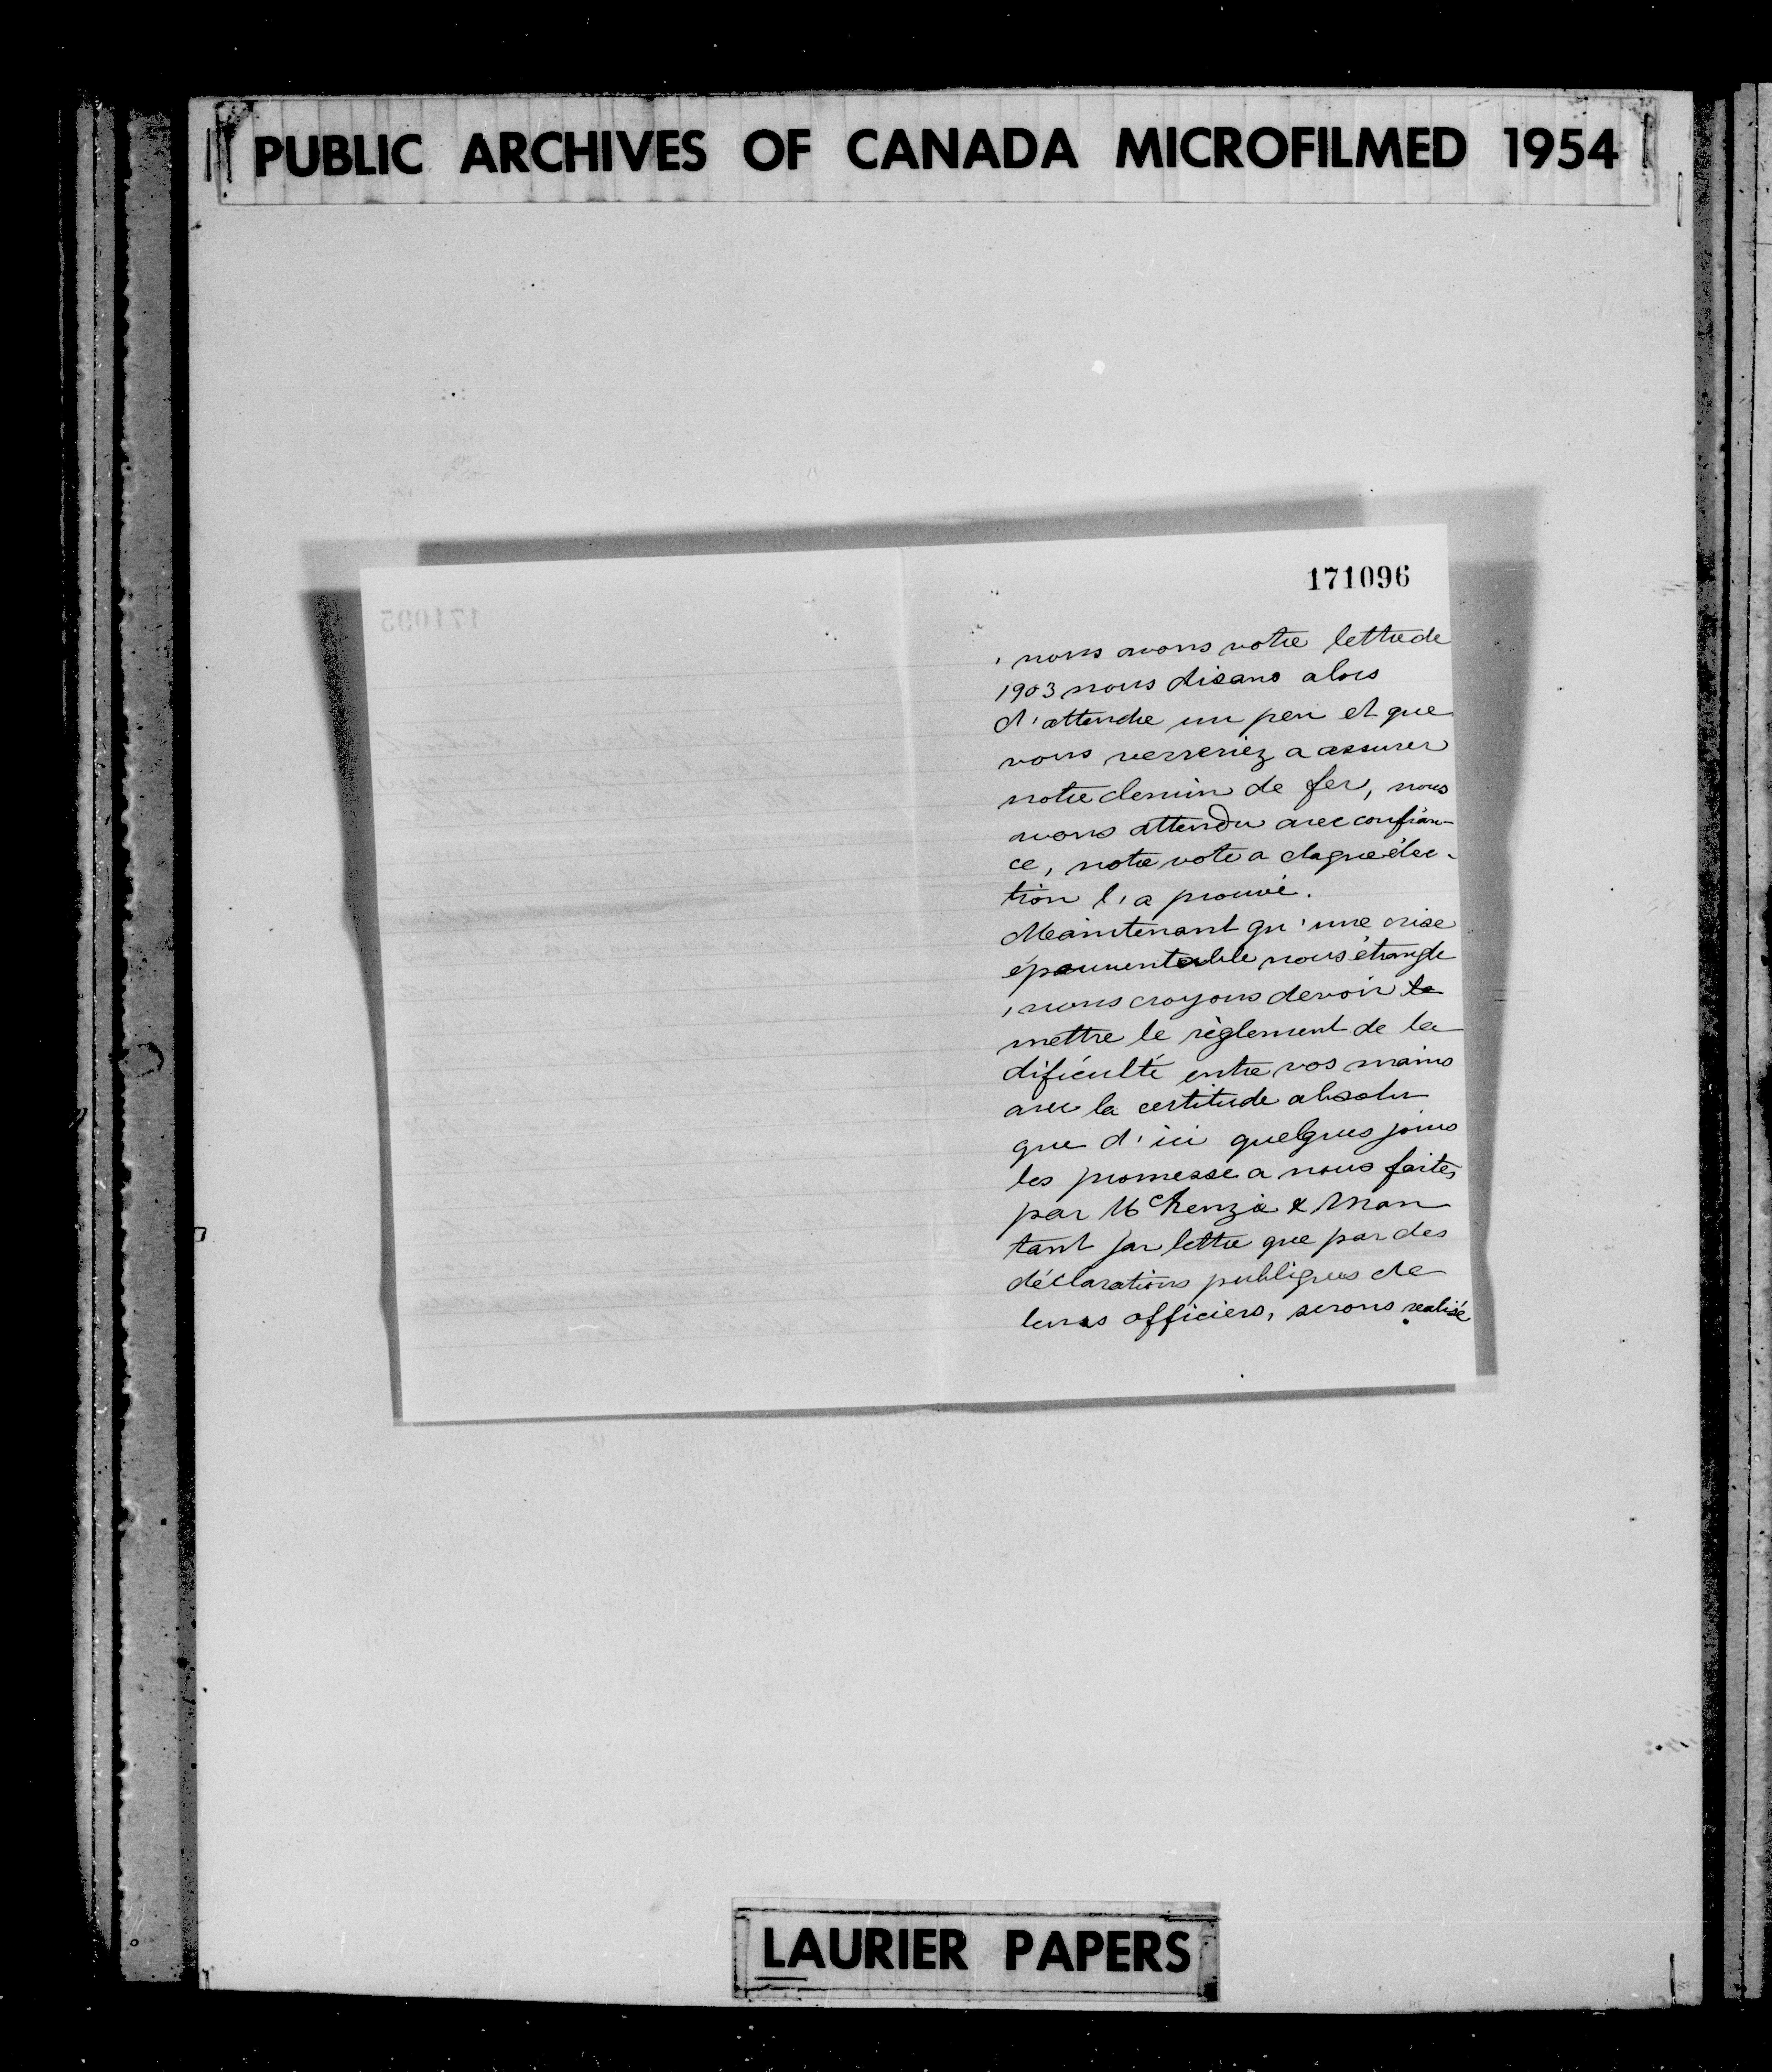 PUBLIC ARCHIVES OF CANADA MICROFILMED 1954
171096
, nous avons votre lettre de
1903 nous disans alors
d'attendre un peu et que
vous verreriez a assurer
notre chemin de fer, nous
avons attendu avec confian-
ce, notre vote a chaque élec-
tion l'a prouvé.
Maintenant qu'une crise
épouventable nous étrangle
, nous croyons devoir
mettre le règlement de la
dificulté entre vos mains
avec la certitude absolu
que d'ici quelques jours
les promesse a nous faites
par McKenzie & Man
tant par lettre que par des
déclarations publiques de
leurs officiers, serons realisé
LAURIER PAPERS